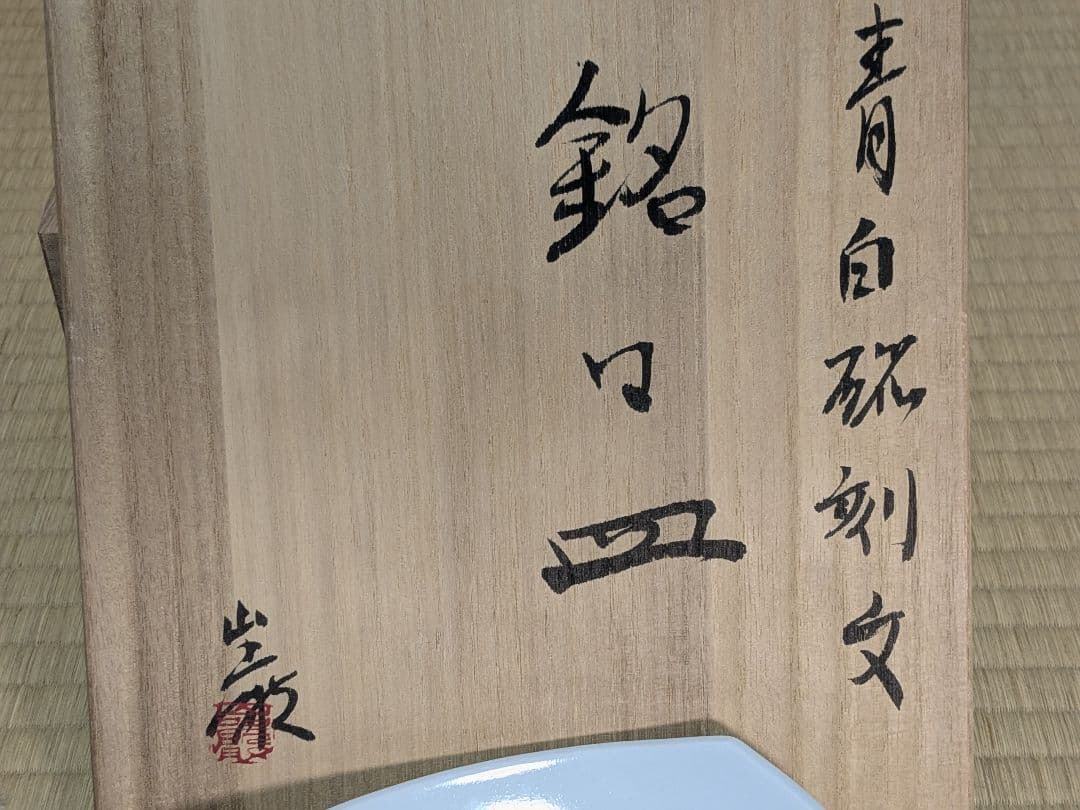 青白磁刻文
銘々皿
巌